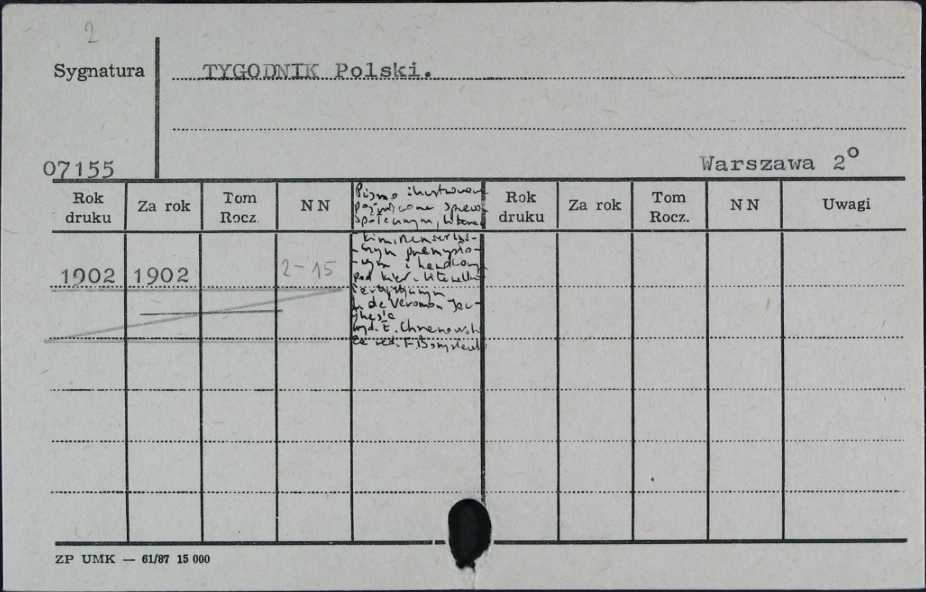 2
Sygnatura
TYGODNIK Polski.
07155
Warszawa 2°
Rok druku
Za rok
Tom Rocz.
NN
Pismo ilustrowane
poświęcone sprawom
społecznym, literac-
kim,
przemysło-
wym i handlowym
pod kier. literackim
i artystycznym
de Veromon
wyd. E. Chrzanowski
za red. F.
Rok druku
Za rok
Tom Rocz.
NN
Uwagi
1902 1902 2-15
ZP UMK — 61/87 15 000